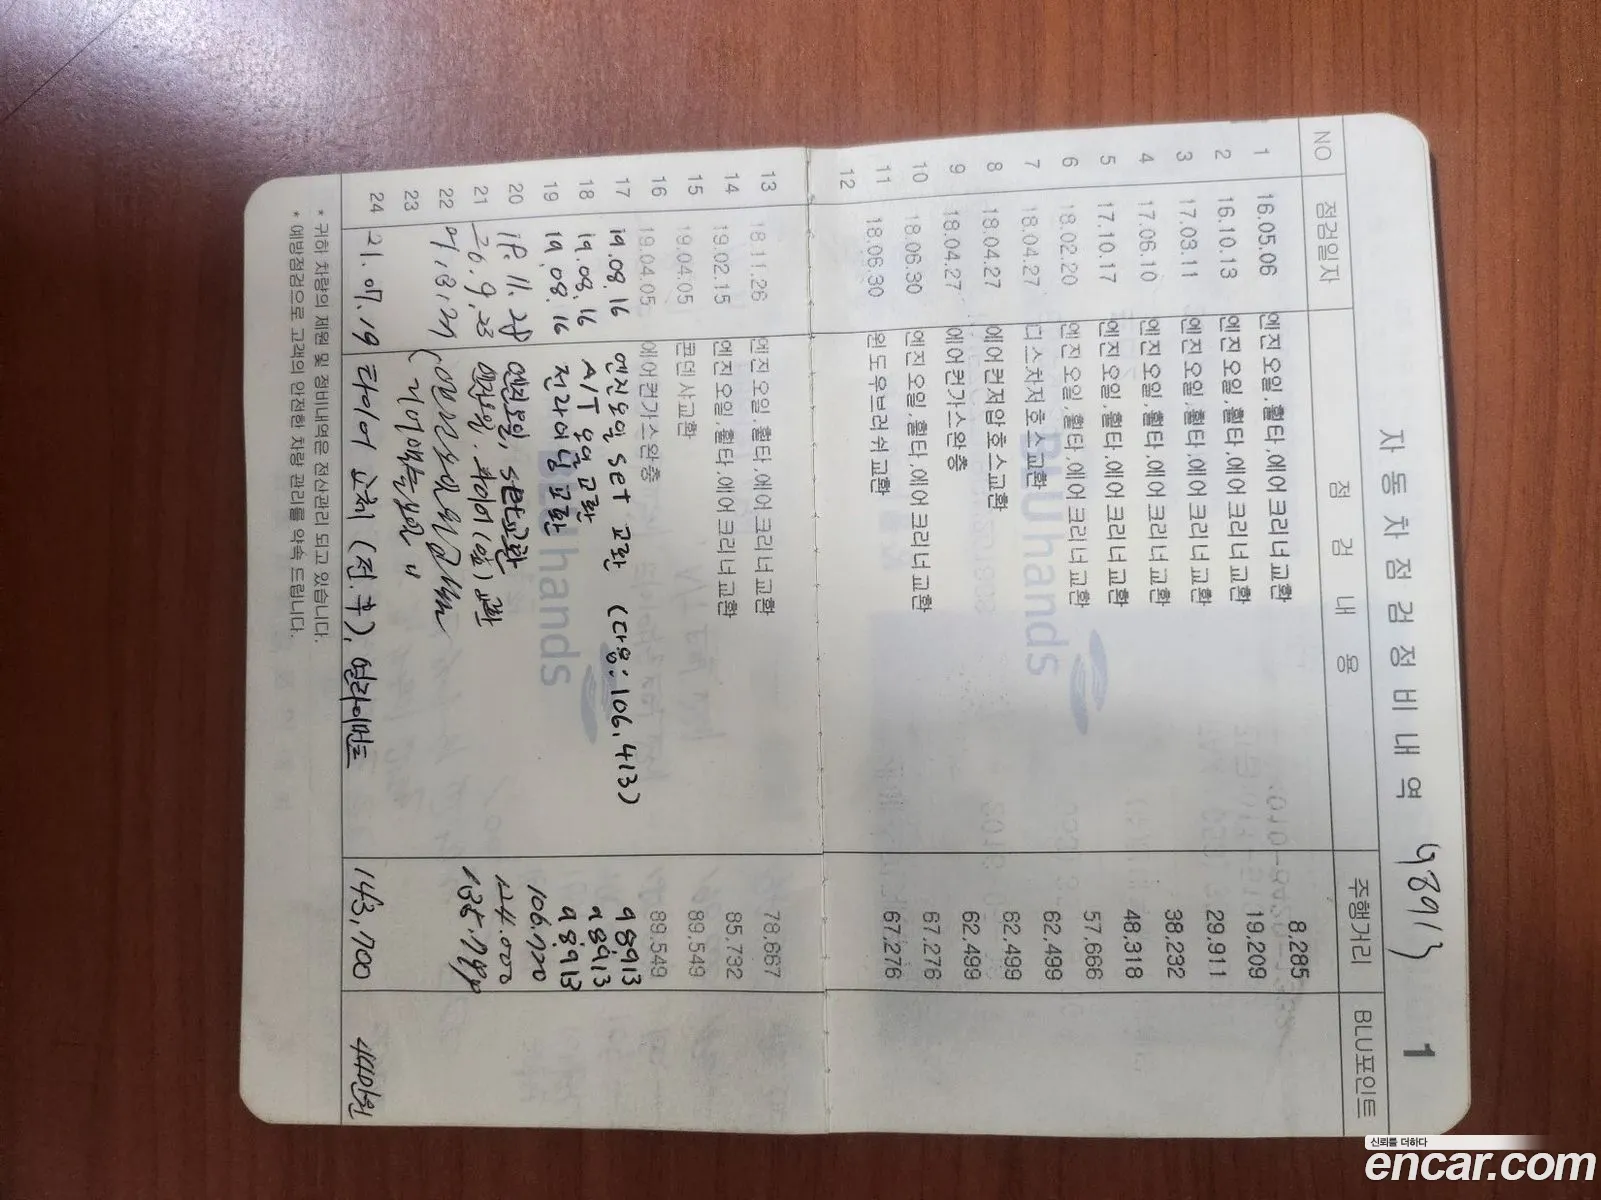 자동차점검정비내역
1
NO 점검일자 점검내용 주행거리 BLU포인트
1 16.05.06 엔진오일,휠타,에어크리너교환 8,285
2 16.10.13 엔진오일,휠타,에어크리너교환 19,209
3 17.03.11 엔진오일,휠타,에어크리너교환 29,911
4 17.06.10 엔진오일,휠타,에어크리너교환 38,232
5 17.10.17 엔진오일,휠타,에어크리너교환 48,318
6 18.02.20 엔진오일,휠타,에어크리너교환 57,666
7 18.04.27 디스차저호스교환 62,499
8 18.04.27 에어컨저압호스교환 62,499
9 18.04.27 에어컨가스완충 62,499
10 18.06.30 엔진오일,휠타,에어크리너교환 67,276
11 18.06.30 윈도우브러쉬교환 67,276
12
BLUhands
13 18.11.26 엔진오일,휠타,에어크리너교환 78,667
14 19.02.15 엔진오일,휠타,에어크리너교환 85,732
15 19.04.05 콘덴사교환 89,549
16 19.04.05 에어컨가스완충 89,549
17 19.08.16 엔진오일 set 교환 (다음:106,413) 98913
18 19.08.16 A/T 오일교환 98913
19 19.08.16 전라이닝교환 98913
20 19.11. 엔진오일, set교환 106.770
21 교환
22
23
24 21.07.19 타이어 교체 (전.후), 얼라이먼트 143,700 44만원
BLUhands
* 귀하 차량의 제원 및 정비내역은 전산관리 되고 있습니다.
* 예방점검으로 고객의 안전한 차량 관리를 약속 드립니다.
신뢰를 더하다
encar.com